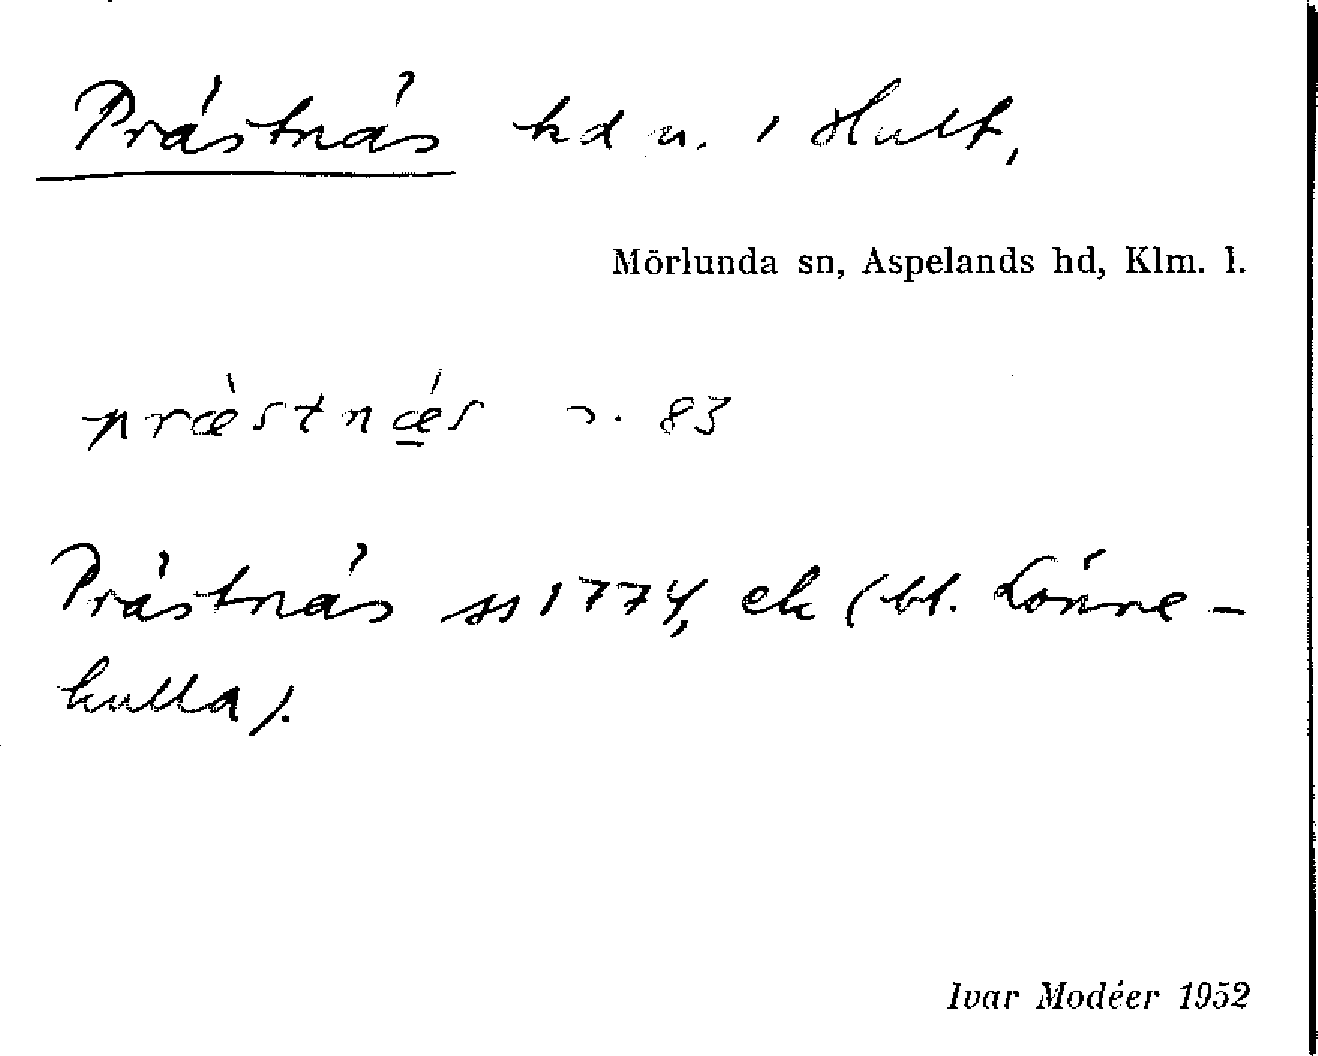 Prästnäs hd n. i Hult,
Mörlunda sn, Aspelands hd, Klm. l.
præ̀stnǽ̠s 83
Prästnäs ss 1774, ek (bl. Lönne-
kulla).
Ivar Modéer 1952